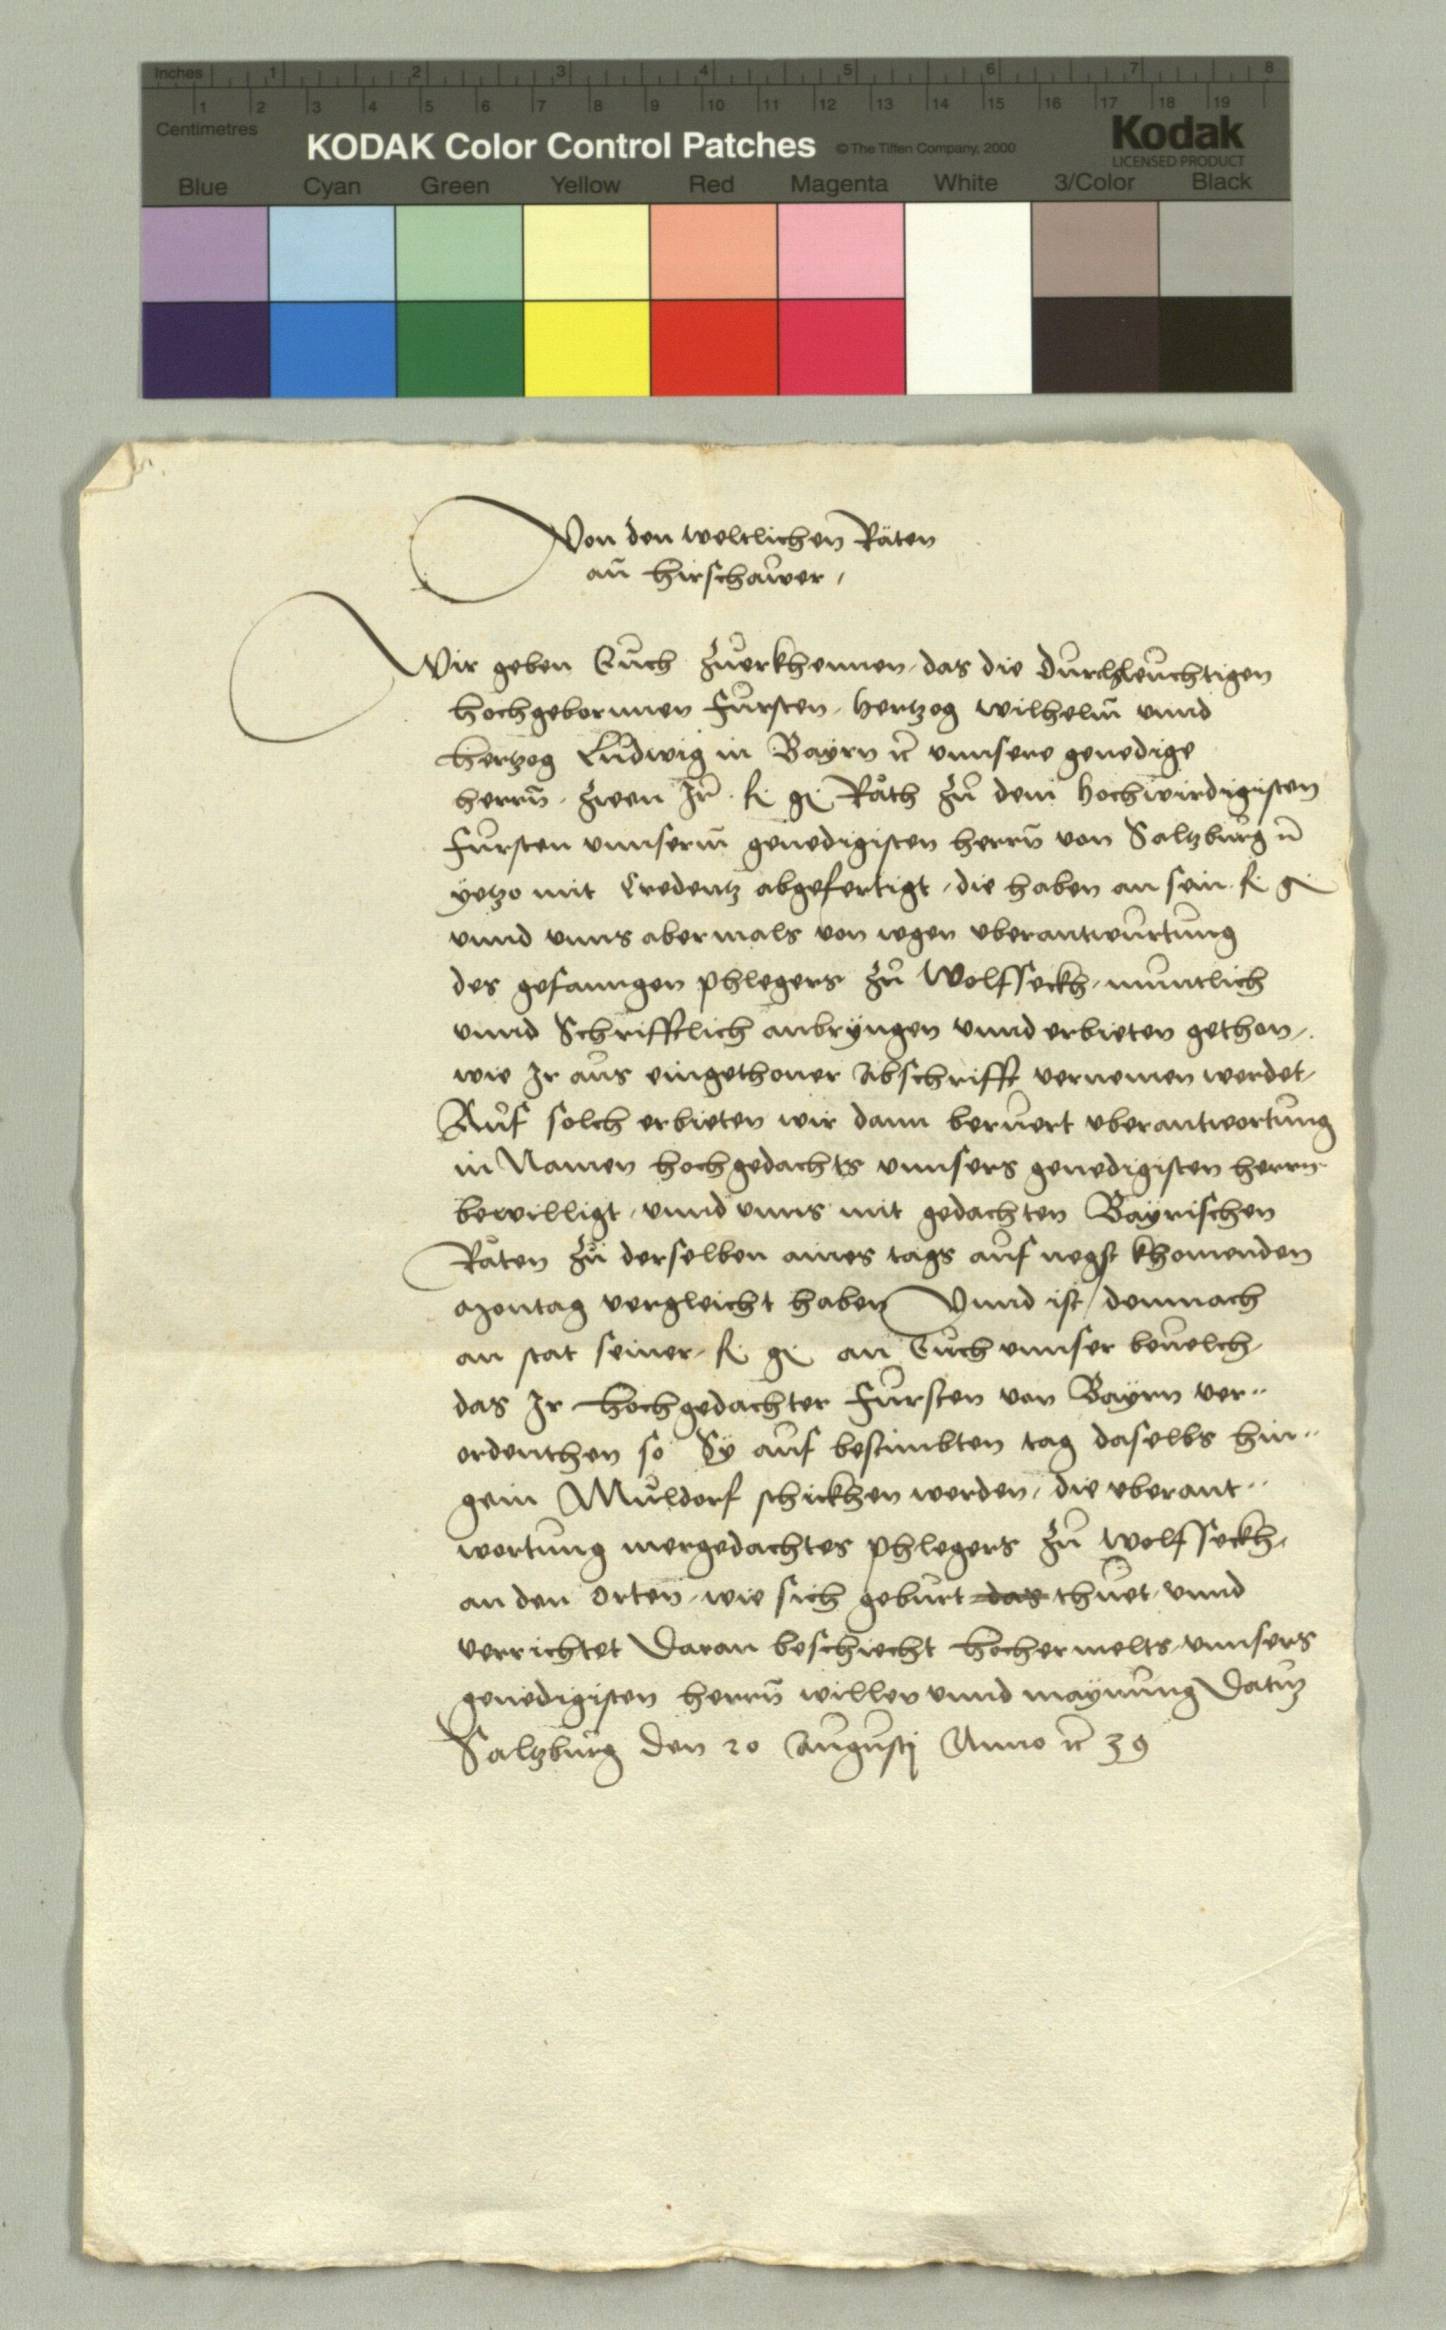 Inches 1 2 3 4 5 6 7 8
1 2 3 4 5 6 7 8 9 10 11 12 13 14 15 16 17 18 19
Centimetres
KODAK Color Control Patches © The Tiffen Company, 2000 Kodak
LICENSED PRODUCT
Blue Cyan Green Yellow Red Magenta White 3/Color Black
Von den weltlichen Räten
an̄ Hirschawer,
Wir geben Euch zuerkhennen, das die durchleuchtigen
hochgebornnen Fursten, Hertzog Wilhelm̄ vnnd
Hertzog Ludwig in Bayrn ꝛc vnnsere genedige
herrn̄, zween Ir f. g. Räth zu dem hochwirdigisten
Fursten vnnserm̄ genedigisten herrn̄ von Saltzburg ꝛc
yetzo mit Credentz abgefertigt, die haben an sein f. g.
vnnd vnns abermals von wegen vberantwurtung
des gefanngen phlegers zu Wolfseckh, muntlich
vnnd Schrifftlich anbryngen vnnd erbieten gethon,
wie Ir aus eingethoner Abschrifft vernemen werdet,
Auf solch erbieten wir dann beruert vberantwortung
in Namen hochgedachts vnnsers genedigisten herrn
bewilligt, vnnd vnns mit gedachten Bayrischen
Räten zu derselben aines tags auf negst khomenden
Montag vergleicht haben Vnnd ist demnach
an stat seiner f. g. an Euch vnnser beuelch,
das Ir hochgedachter Fursten von Bayrn ver-
ordenthen so Sy auf bestimbten tag daselbs hin-
gein Muldorf schickhen werden, die vberant-
wortung mergedachtes phlegers zu Wolfseckh,
an den Orten, wie sich geburt das thuet, vnnd
verrichtet Daran beschiecht hochermelts vnnsers
genedigisten herrn̄ willen vnnd maynung Datum
Saltzburg den 20 Augustj Anno ꝛc 39